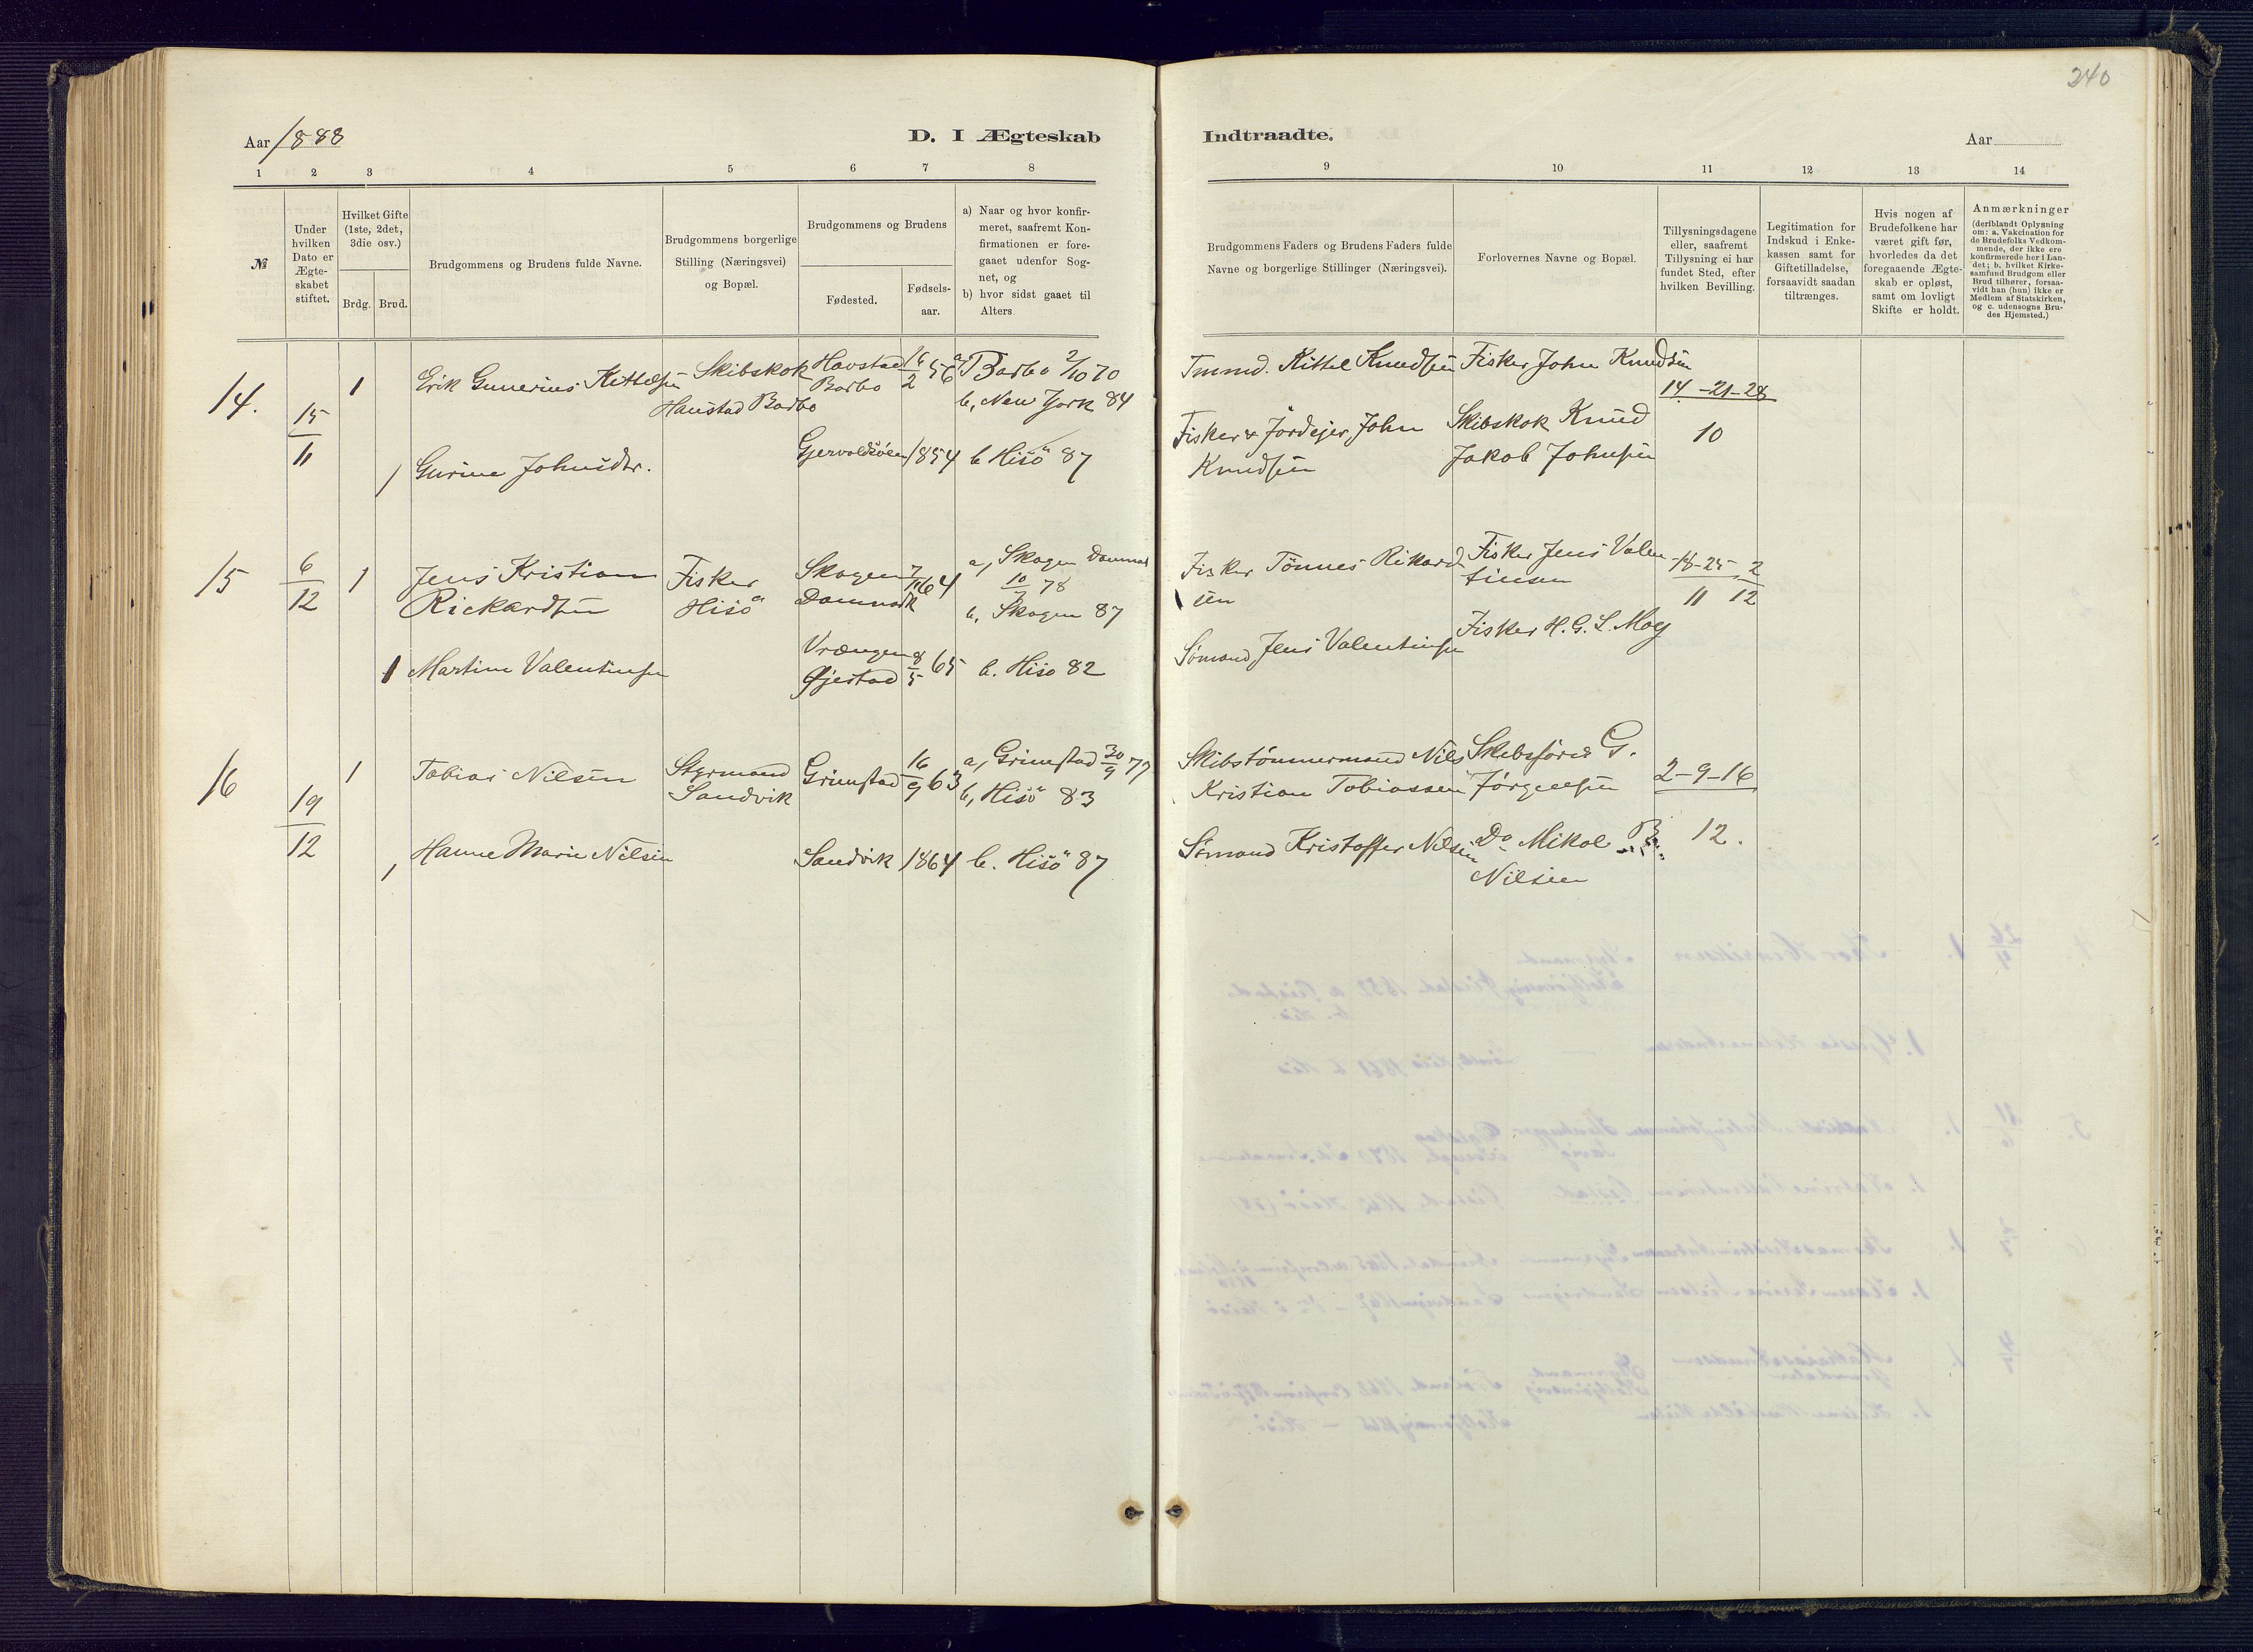 240
Aar 1888
D. I Ægteskab
Indtraadte.
Aar
1 2 3 4 5 6 7 8 9 10 11 12 13 14
№
Under
hvilken
Dato er
Ægte-
skabet
stiftet.
Hvilket Gifte
(1ste, 2det,
3die osv.)
Brdg. Brud.
Brudgommens og Brudens fulde Navne.
Brudgommens borgerlige
Stilling (Næringsvei)
og Bopæl.
Brudgommens og Brudens
Fødested.
Fødsels-
aar.
a) Naar og hvor konfir-
meret, saafremt Kon-
firmationen er fore-
gaaet udenfor Sog-
net, og
b) hvor sidst gaaet til
Alters
Brudgommens Faders og Brudens Faders fulde
Navne og borgerlige Stillinger (Næringsvei).
Forlovernes Navne og Bopæl.
Tillysningsdagene
eller, saafremt
Tillysning ei har
fundet Sted, efter
hvilken Bevilling.
Legitimation for
Indskud i Enke-
kassen samt for
Giftetilladelse,
forsaavidt saadan
tiltrænges.
Hvis nogen af
Brudefolkene har
været gift før,
hvorledes da det
foregaaende Ægte-
skab er opløst,
samt om lovligt
Skifte er holdt.
Anmærkninger
(deriblandt Oplysning
om: a. Vakcination for
de Brudefolks Vedkom-
mende, der ikke ere
konfirmerede her i Lan-
det; b. hvilket Kirke-
samfund Brudgom eller
Brud tilhører, forsaa-
vidt han (hun) ikke er
Medlem af Statskirken,
og c. udensogns Bru-
des Hjemsted.)
14. 15/11 1 Erik Gunerius Kittelsen Skibskok Havstad 16/2 56 a, Barbo 2/10 70 Tmmd. Kittel Knudsen Fisker John Knudsen
Haustad Barbo Barbo b, New York 84 14-21-28
1 Gurine Johnsdtr. Gjervoldsøen 1854 b Hisö 87 Fisker & Jordejer John Skibskok Knud 10
Knudsen Jakob Johnsen
15 6/12 1 Jens Kristian Fisker Skagen 7/11 64 a, Skagen Danmark Fisker Tönnes Rikard Fisker Jens Valen 18-25 2
Rickardsen Hisö Danmark 10/ 78 sen tinsen 11 12
b, Skagen 87
1 Martine Valentinsen Vrængen 8/5 65 b. Hisö 82 Sömand Jens Valentinsen Fisker H. G. L. Moy
Øjestad
16 19/12 1 Tobias Nilsen Styrmand Grimstad 16/9 63 a, Grimstad 30/9 77 Skibstömmermand Nils Skibsförer G.
Sandvik b, Hisö 83 Kristian Tobiassen Jörgensen 2-9-16
1 Hanne Marie Nilsen Sandvik 1864 b. Hisö 87 Sömand Kristoffer Nilsen Do Mikal B. 12.
Nilsen